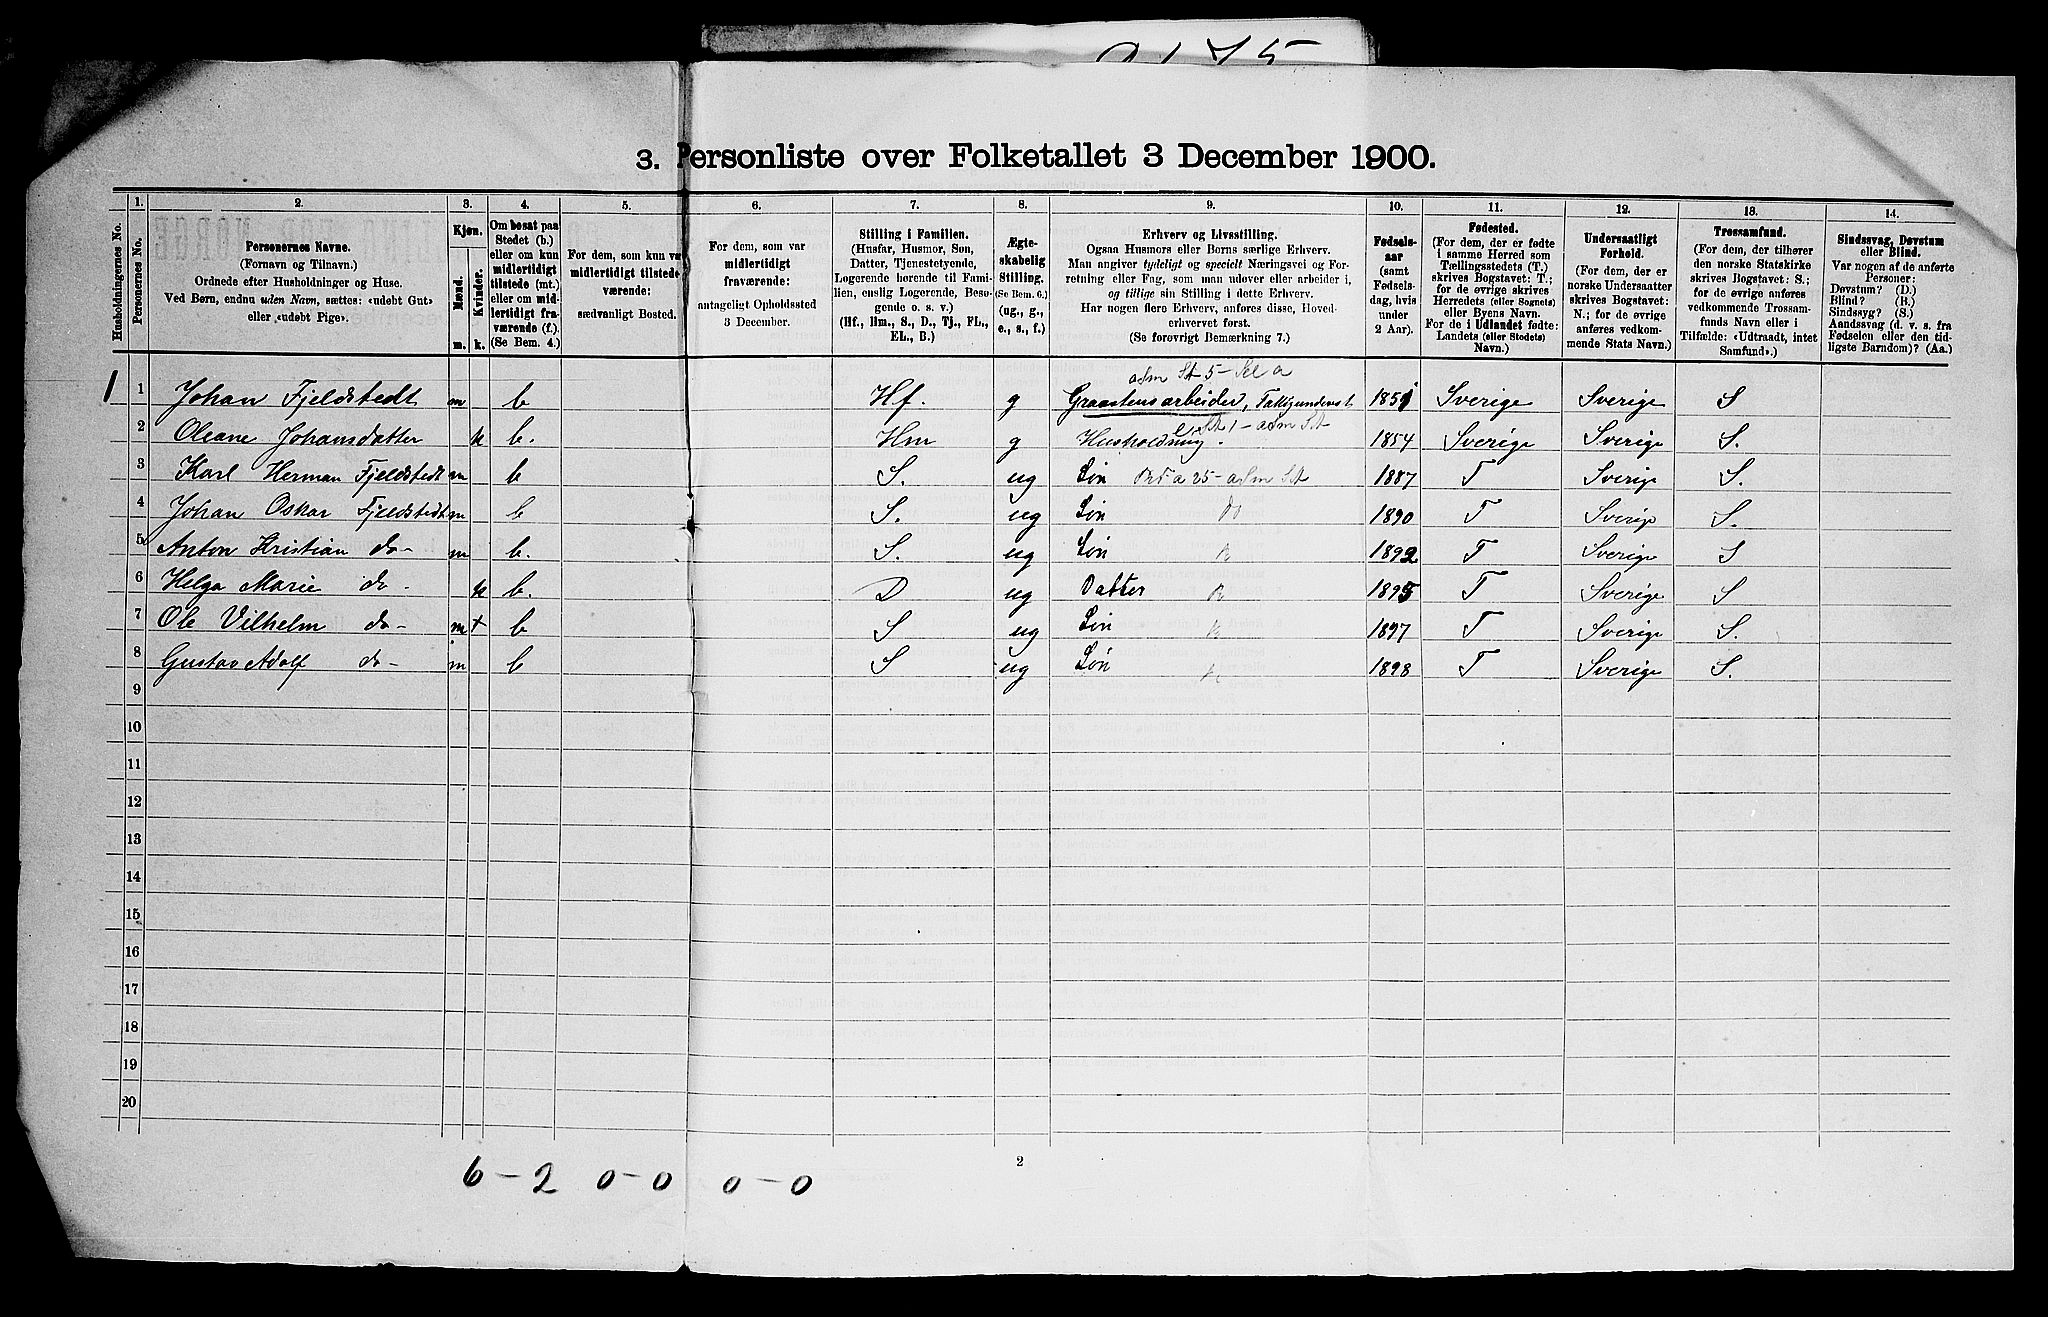 3. Personliste over Folketallet 3 December 1900.
Husholdningernes No.
1. Personernes No.
2.
Personernes Navne.
(Fornavn og Tilnavn.)
Ordnede efter Husholdninger og Huse.
Ved Børn, endnu uden Navn, sættes: «udøbt Gut»
eller «udøbt Pige».
3.
Kjøn.
Mænd. Kvinder.
m. k.
4.
Om bosat paa
Stedet (b.)
eller om kun
midlertidigt
tilstede (mt.)
eller om mid-
lertidigt fra-
værende (f.)
(Se Bem. 4.)
5.
For dem, som kun var
midlertidigt tilstede-
værende:
sædvanligt Bosted.
6.
For dem, som var
midlertidigt
fraværende:
antageligt Opholdssted
3 December.
7.
Stilling i Familien.
(Husfar, Husmor, Søn,
Datter, Tjenestetyende,
Logerende hørende til Fami-
lien, enslig Logerende, Besø-
gende o. s. v.)
(Hf., Hm., S., D., Tj., FL.,
EL., B.)
8.
Ægte-
skabelig
Stilling.
(Se Bem. 6.)
(ug., g.,
e., s., f.)
9.
Erhverv og Livsstilling.
Ogsaa Husmors eller Børns særlige Erhverv.
Man angiver tydeligt og specielt Næringsvei og For-
retning eller Fag, som man udøver eller arbeider i,
og tillige sin Stilling i dette Erhverv.
Har nogen flere Erhverv, anføres disse, Hoved-
erhvervet først.
(Se forøvrigt Bemærkning 7.)
10.
Fødsels-
aar
(samt
Fødsels-
dag, hvis
under
2 Aar).
11.
Fødested.
(For dem, der er fødte
i samme Herred som
Tællingsstedets (T.)
skrives Bogstavet: T.;
for de øvrige skrives
Herredets (eller Sognets)
eller Byens Navn.
For de i Udlandet fødte:
Landets (eller Stedets)
Navn.)
12.
Undersaatligt
Forhold.
(For dem, der er
norske Undersaatter
skrives Bogstavet:
N.; for de øvrige
anføres vedkom-
mende Stats Navn.)
13.
Trossamfund.
(For dem, der tilhører
den norske Statskirke
skrives Bogstavet: S.;
for de øvrige anføres
vedkommende Trossam-
funds Navn eller i
Tilfælde: «Udtraadt, intet
Samfund».)
14.
Sindssvag, Døvstum
eller Blind.
Var nogen af de anførte
Personer:
Døvstum? (D.)
Blind? (B.)
Sindssyg? (S.)
Aandssvag (d. v. s. fra
Fødselen eller den tid-
ligste Barndom)? (Aa.)
1 1 Johan Fjeldstedt m b Hf. g Graastensarbeider, 1851 Sverige Sverige S
2 Oleane Johansdatter k b. Hm g Husholdning. 1854 Sverige Sverige S.
3 Karl Herman Fjeldstedt m b S. ug Søn 1887 T Sverige S.
4 Johan Oskar Fjeldstedt m b S. ug Søn do 1890 T Sverige S.
5 Anton Kristian do- m b. S. ug Søn 1892 T Sverige S
6 Helga Marie do- k b. D ug Datter 1895 T Sverige S
7 Ole Vilhelm do- m b S ug Søn 1897 T Sverige S.
8 Gustav Adolf do- m b S ug Søn 1898 T Sverige S.
9
10
11
12
13
14
15
16
17
18
19
20
6-2 0-0 0-0
2